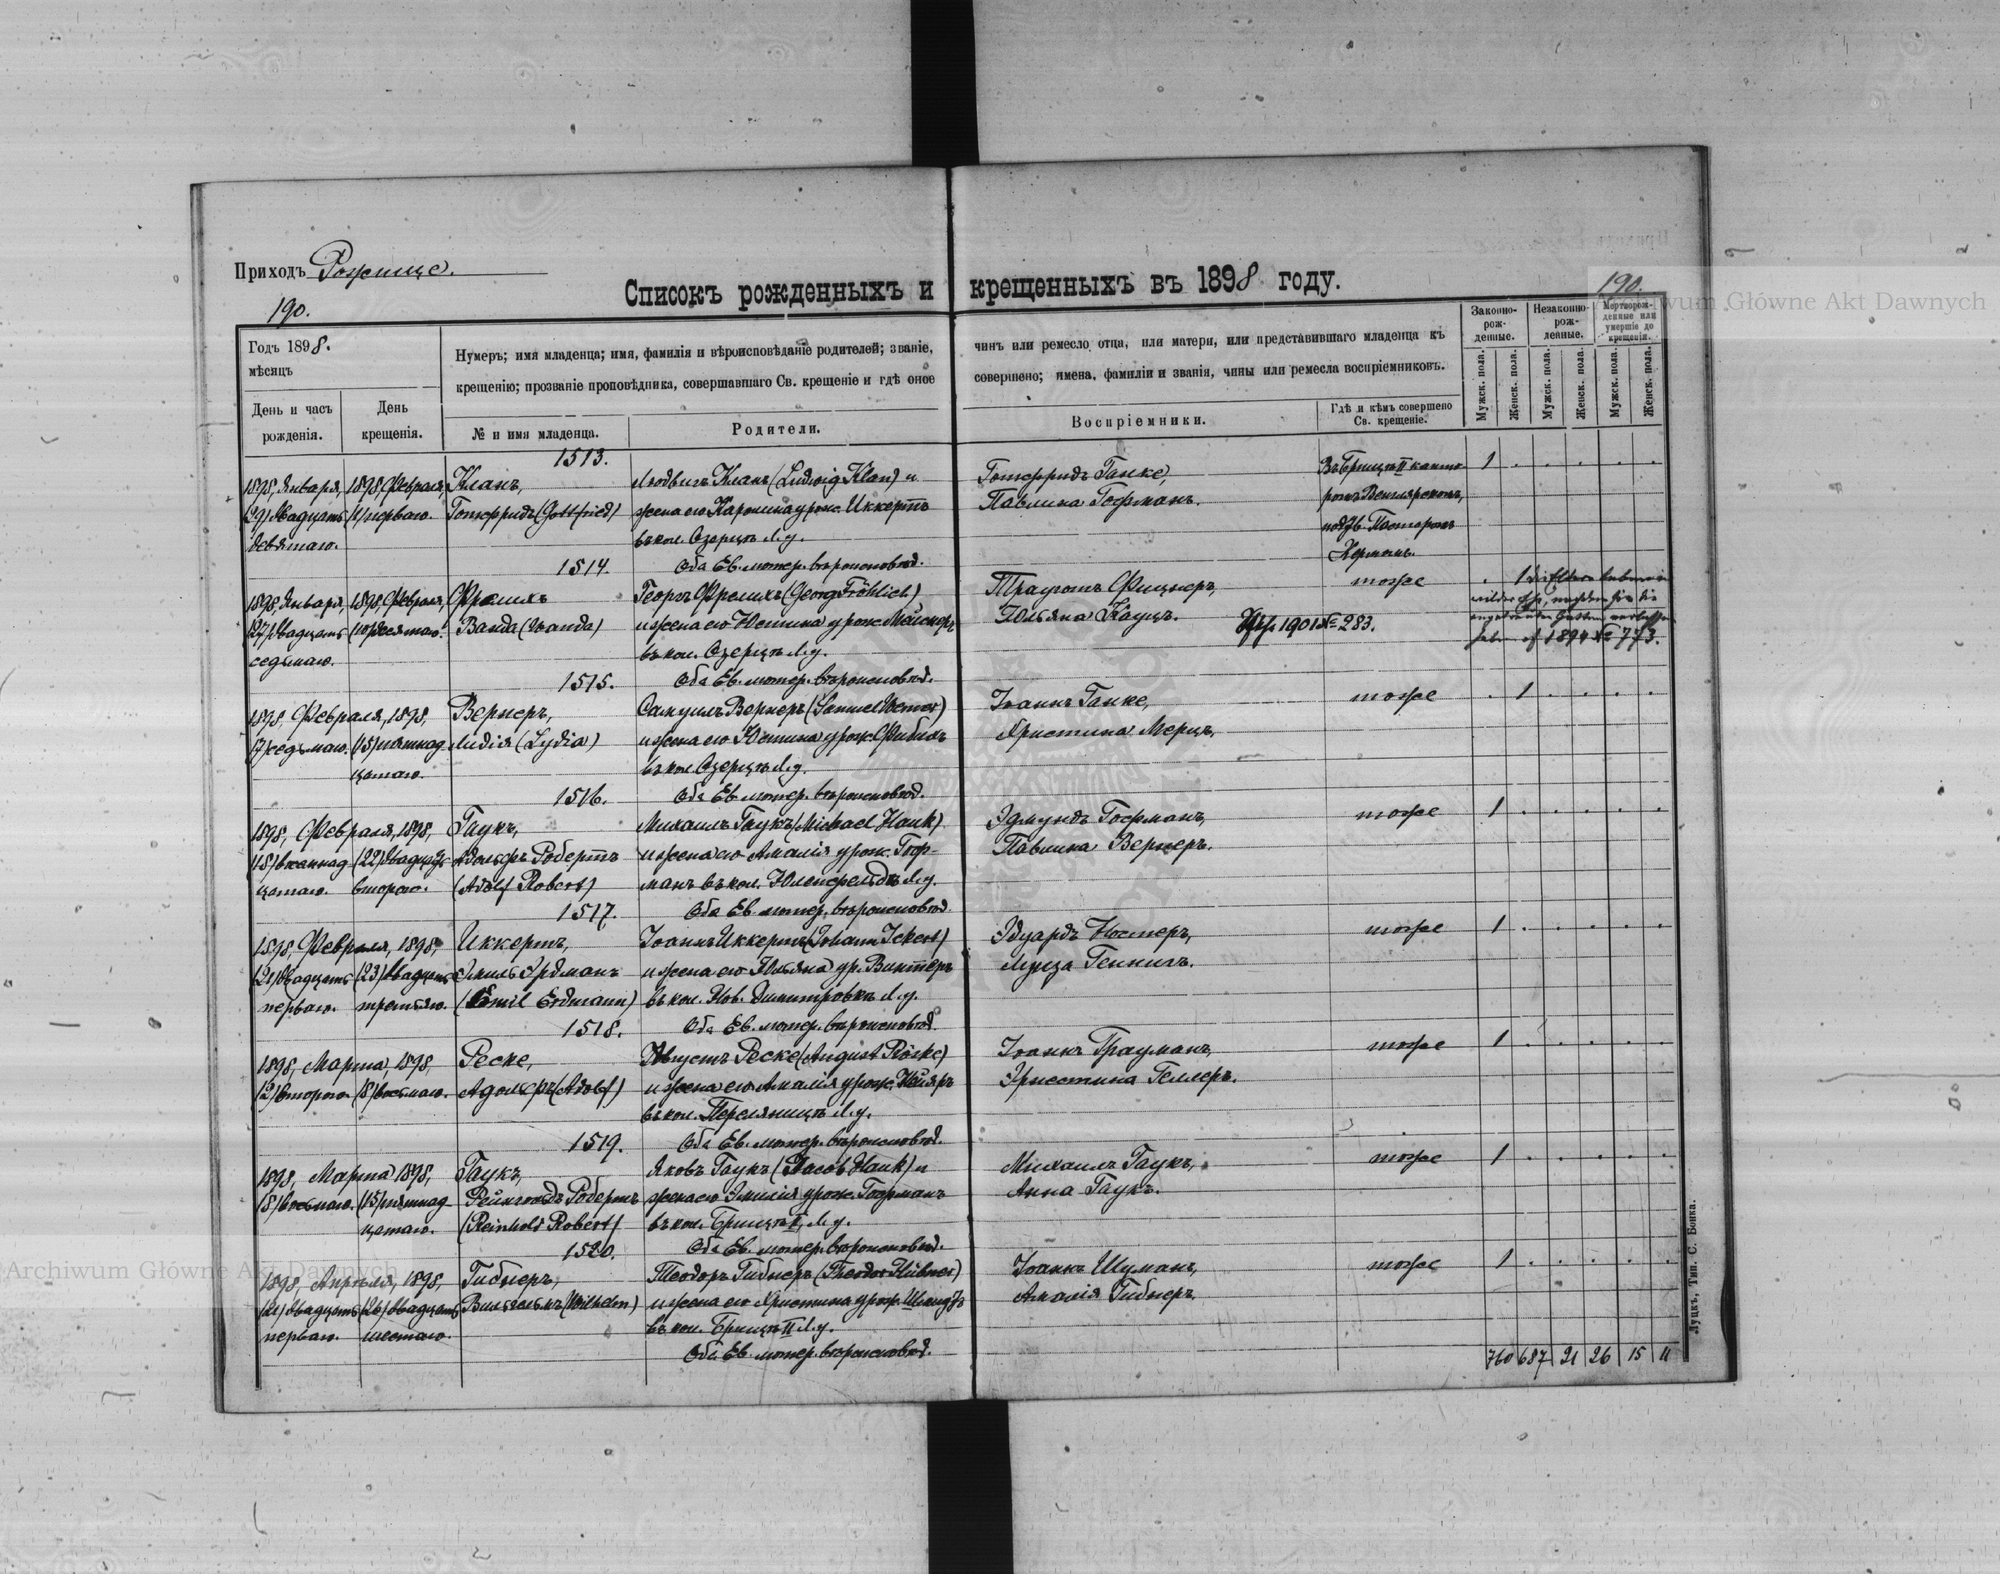 Приходъ Рожище.
190.
190.
Списокъ рожденныхъ и крещенныхъ въ 1898 году.
Archiwum Główne Akt Dawnych
Годъ 1898.
мѣсяцъ
День и часъ
рожденія.
День
крещенія.
Нумеръ; имя младенца; имя, фамилія и вѣроисповѣданіе родителей; званіе,
крещенію; прозваніе проповѣдника, совершавшаго Св. крещеніе и гдѣ оное
№ и имя младенца.
Родители.
чинъ или ремесло отца, или матери, или представившаго младенца къ
совершено; имена, фамиліи и званія, чины или ремесла воспріемниковъ.
Воспріемники.
Гдѣ и кѣмъ совершено
Св. крещеніе.
Законно-
рож-
денные.
Незаконно-
рож-
денные.
Мертворож-
денные или
умершіе до
крещенія.
Мужск. пола.
Женск. пола.
Мужск. пола.
Женск. пола.
Мужск. пола.
Женск. пола.
1513.
1898, Января, 1898, Февраля,
(29) двадцать (1) перваго.
девятаго.
Кланъ,
Готфридъ (Gottfried)
Людвигъ Кланъ (Ludwig Klan) и
жена его Каролина урож. Иккертъ
въ кол. Озерцѣ Л. у.
Оба Ев. лютер. вѣроисповѣд.
Готфридъ Ганке,
Павлина Гофманъ.
Въ Брищѣ II канто-
ромъ
подтв. Пасторомъ
Керномъ.
1
1514.
1898, Января, 1898, Февраля,
(27) двадцать (10) десятаго.
седьмаго.
Фрелихъ
Ванда (Wanda)
Георгъ Фрелихъ (Georg Fröhlich)
и жена его Юстина урож.
въ кол. Озерцѣ Л. у.
Оба Ев. лютер. вѣроисповѣд.
Трауготъ Фицнеръ,
Юльяна Кауцъ.
1901 № 283.
тоже
1 die Eltern leben in
wilder Ehe, nachdem sie die
angetrauten Gatten verlassen
haben cf 1894 № 773.
1515.
1898, Февраля, 1898,
(7) седьмаго. (15) пятнад-
цатаго.
Вернеръ,
Лидія (Lydia)
Самуилъ Вернеръ (Samuel Werner)
и жена его Юстина урож. Фибихъ
въ кол. Озерцѣ Л. у.
Оба Ев. лютер. вѣроисповѣд.
Іоаннъ Ганке,
Христина Мерцъ.
тоже
1
1516.
1898, Февраля, 1898,
(18) восемнад- (22) двадцать
цатаго. втораго.
Гаукъ,
Адольфъ Робертъ
(Adolf Robert)
Михаилъ Гаукъ (Michael Hauk)
и жена его Амалія урож. Гоф-
манъ въ кол. Юленфельдъ Л. у.
Оба Ев. лютер. вѣроисповѣд.
Эдмундъ Гофманъ,
Павлина Вернеръ.
тоже
1
1517.
1898, Февраля, 1898,
(21) двадцать (23) двадцать
перваго. третьяго.
Иккертъ,
Эмиль Эрдманъ
(Emil Erdmann)
Іоаннъ Иккертъ (Johann Ickert)
и жена его Юльяна ур. Винтеръ
въ кол. Нов. Димитровкѣ Л. у.
Оба Ев. лютер. вѣроисповѣд.
Эдуардъ Ностеръ,
Луиза Геннигъ.
тоже
1
1518.
1898, Марта, 1898,
(2) втораго. (8) восьмаго.
Реске,
Адольфъ (Adolf)
Августъ Реске (August Röske)
и жена его Амалія урож.
въ кол. Переляницѣ Л. у.
Оба Ев. лютер. вѣроисповѣд.
Іоаннъ Грауманъ,
Христина Геллеръ.
тоже
1
1519.
1898, Марта, 1898,
(8) восьмаго. (15) пятнад-
цатаго.
Гаукъ,
Рейнголдъ Робертъ
(Reinhold Robert)
Яковъ Гаукъ (Jacob Hauk) и
жена его Эмилія урож. Гофманъ
въ кол. Брищѣ II, Л. у.
Оба Ев. лютер. вѣроисповѣд.
Михаилъ Гаукъ,
Анна Гаукъ.
тоже
1
1520.
1898, Апрѣля, 1898,
(21) двадцать (26) двадцать
перваго. шестаго.
Гибнеръ,
Вильгельмъ (Wilhelm)
Теодоръ Гибнеръ (Theodor Hübner)
и жена его Христина урож. Шмидтъ
въ кол. Брищѣ II Л. у.
Оба Ев. лютер. вѣроисповѣд.
Іоаннъ Шуманъ,
Амалія Гибнеръ
тоже
1
760 687 21 26 15 11
Луцкъ, Тип. С. Бонка.
Archiwum Główne Akt Dawnych